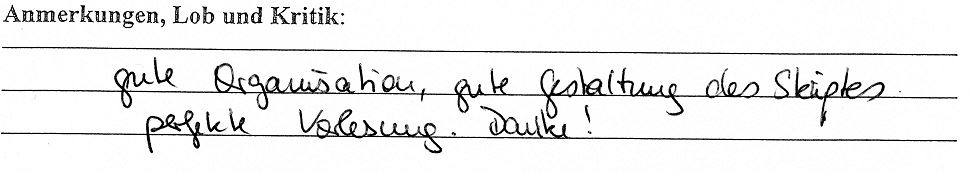 Anmerkungen, Lob und Kritik:
gute Organisation, gute Gestaltung des Skriptes
perfekte Vorlesung. Danke!